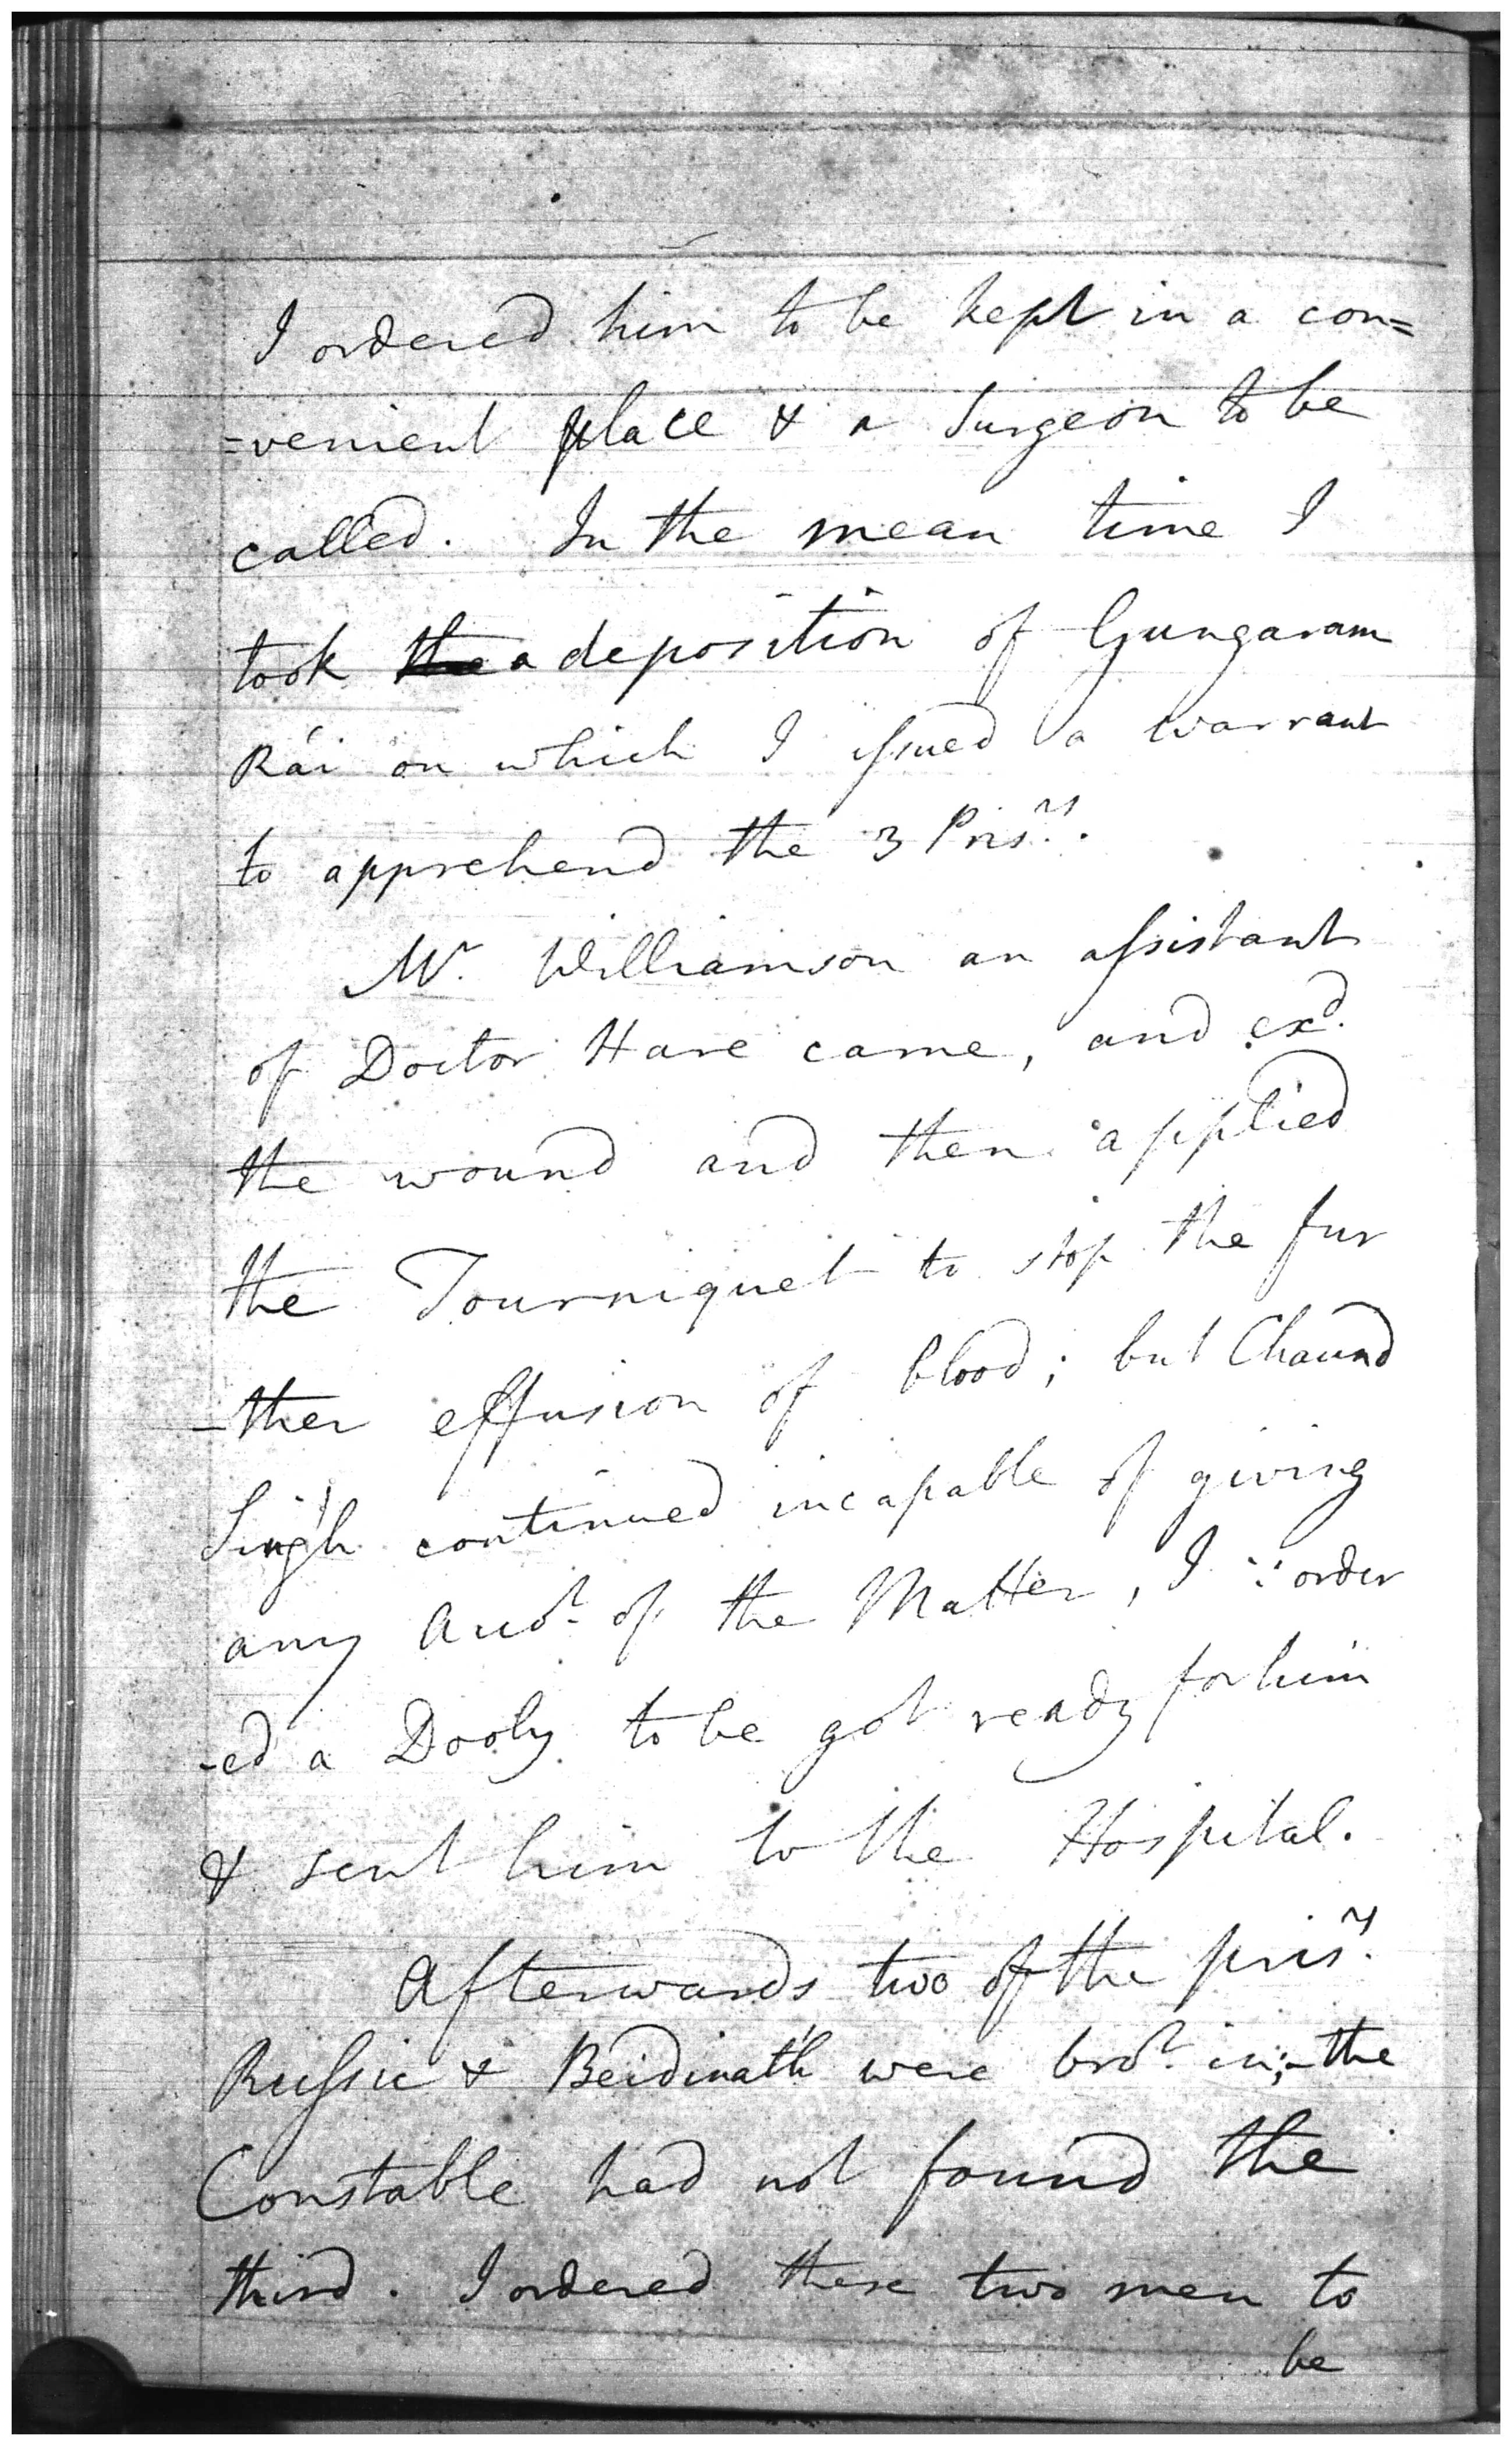 I ordered him to be kept in a con=
=venient place & a Surgeon to be
called. In the mean time I
took the a deposition of Gungaram
Rái on which I issued a warrant
to apprehend the 3 Pris.rs.
Mr. Williamson an assistant
of Doctor Hare came, and exd.
the wound and then applied
the Tourniquet to stop the fur
-ther effusion of blood; but Chaund
Singh continued incapable of giving
any Acct. of the Matter, I ∵ order
-ed a Dooly to be got ready for him
& sent him to the Hospital.
Afterwards two of the prisrs.
Russie & Beidinath were brot. in; - the
Constable had not found the
third. I ordered these two men to
be